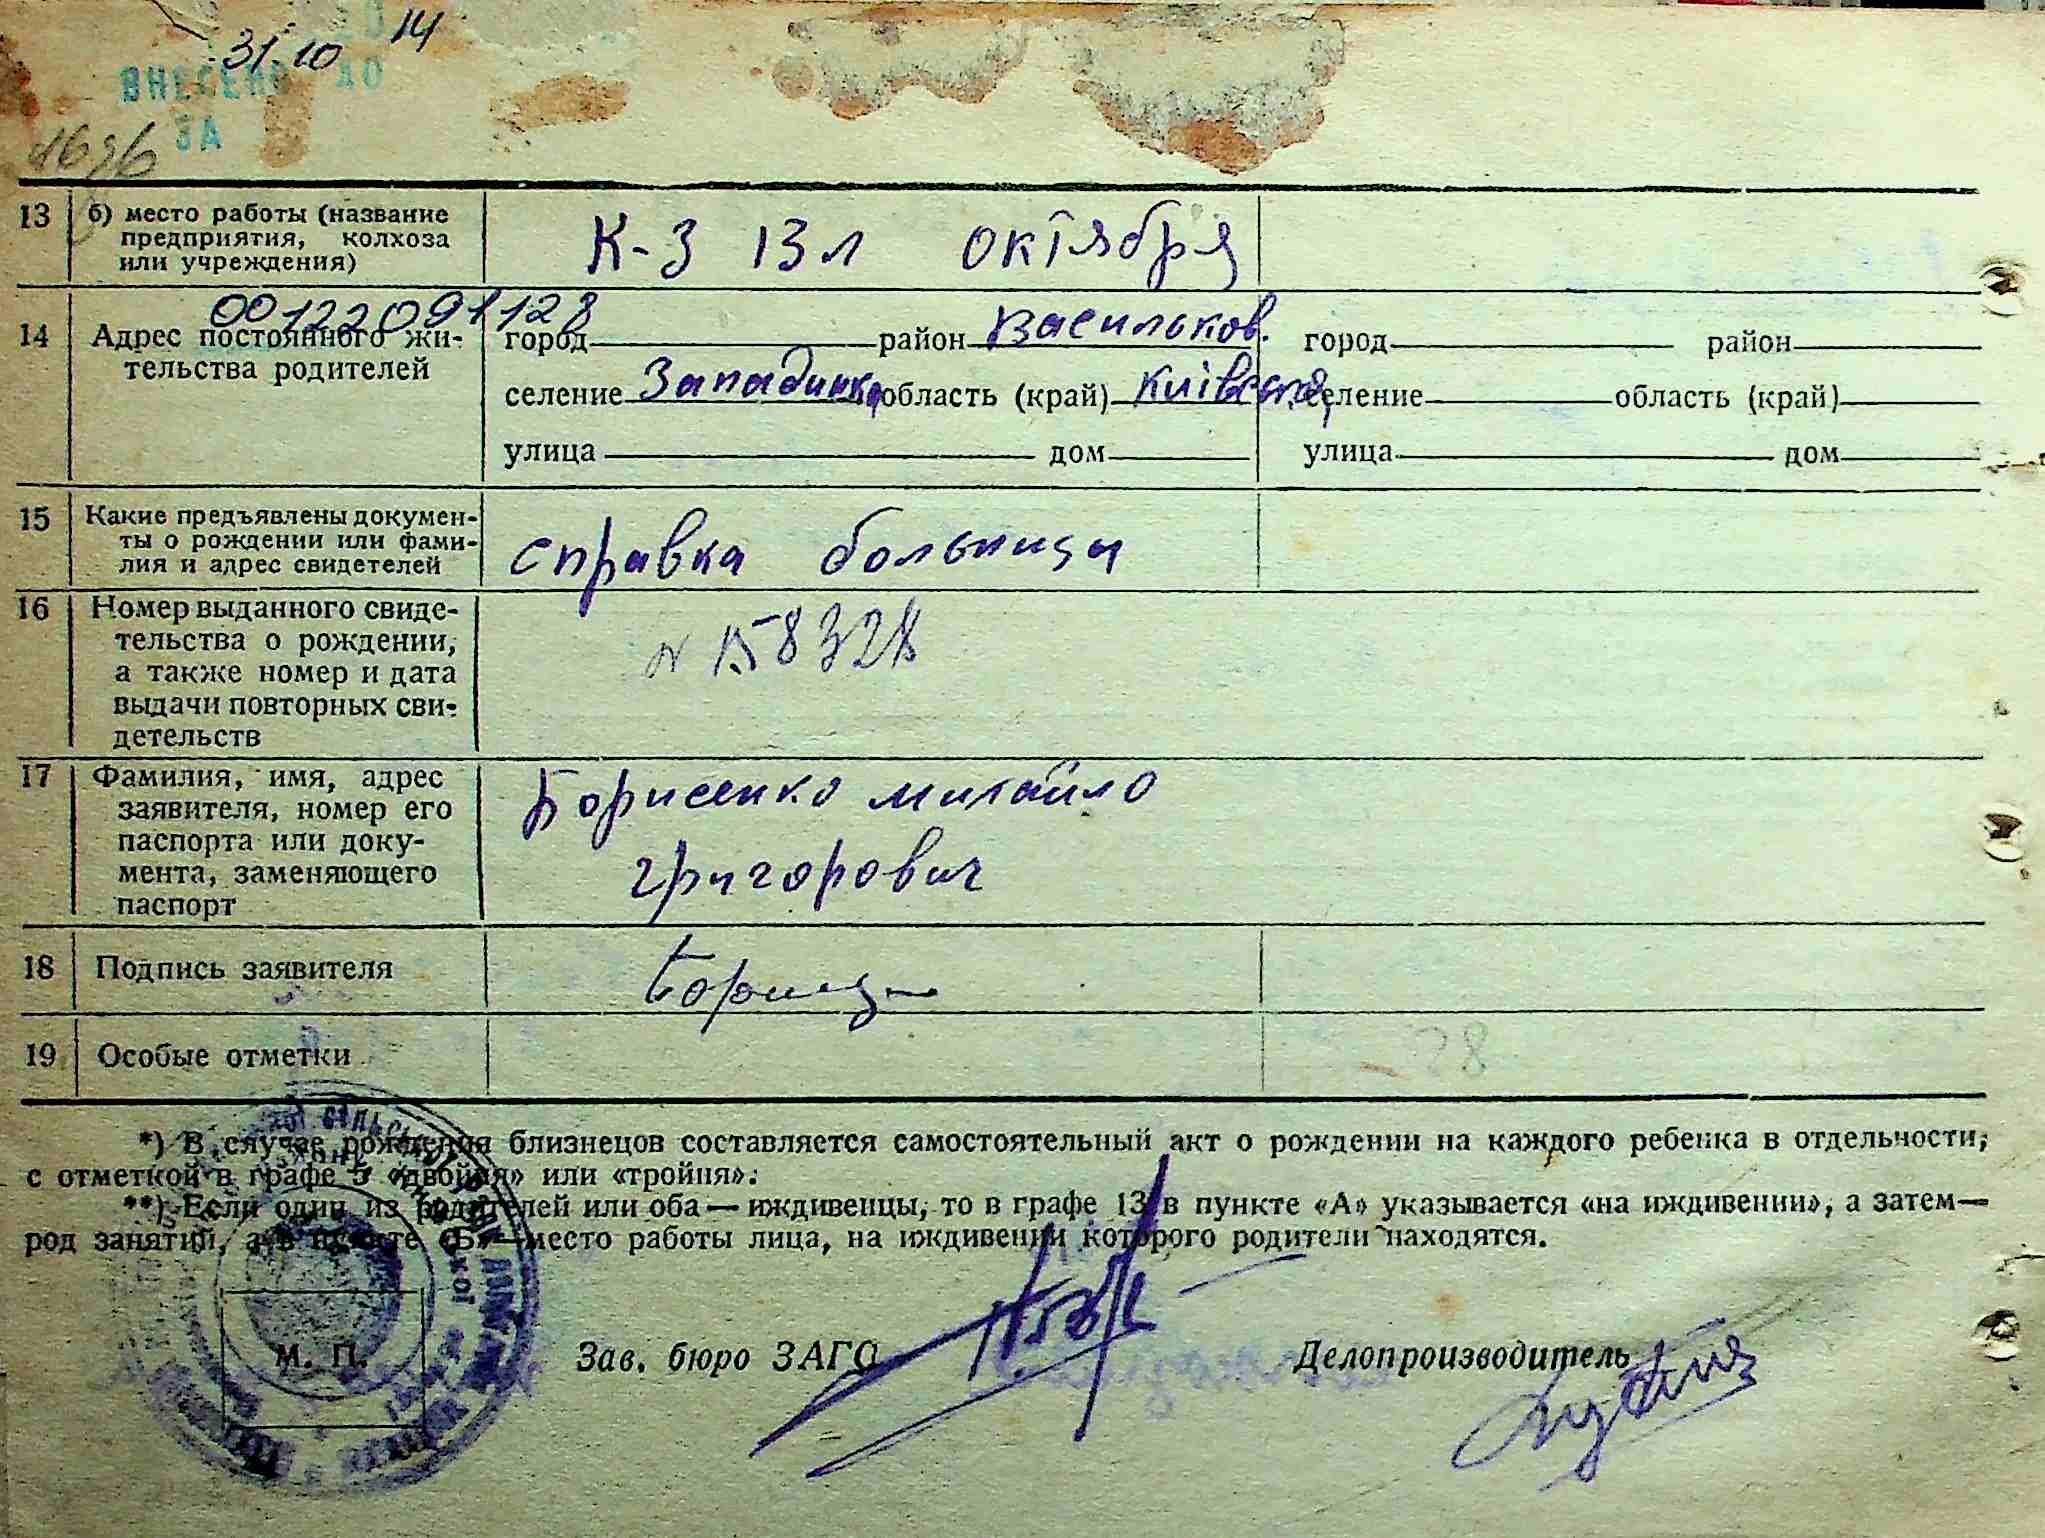 31 10 14
ВНЕСЕНО ДО
ЗА
13 б) место работы (название
предприятия, колхоза
или учреждения)
К-З 13л октября
00122091128
14 Адрес постоянного жи-
тельства родителей
город район Васильков. город район
селение Западинка область (край) Київська, селение область (край)
улица дом улица дом
15 Какие предъявлены докумен-
ты о рождении или фами-
лия и адрес свидетелей
справка больници
16 Номер выданного свиде-
тельства о рождении,
а также номер и дата
выдачи повторных сви-
детельств
N 158328
17 Фамилия, имя, адрес
заявителя, номер его
паспорта или доку-
мента, заменяющего
паспорт
Борисенко Михайло
Григорович
18 Подпись заявителя
19 Особые отметки
28
*) В случае рождения близнецов составляется самостоятельный акт о рождении на каждого ребенка в отдельности,
с отметкой в графе 5 «двойня» или «тройня».
**) Если один из родителей или оба — иждивенцы, то в графе 13 в пункте «А» указывается «на иждивении», а затем—
род занятий, а в пункте «Б»—место работы лица, на иждивении которого родители находятся.
М. П.
Зав. бюро ЗАГС
Делопроизводитель